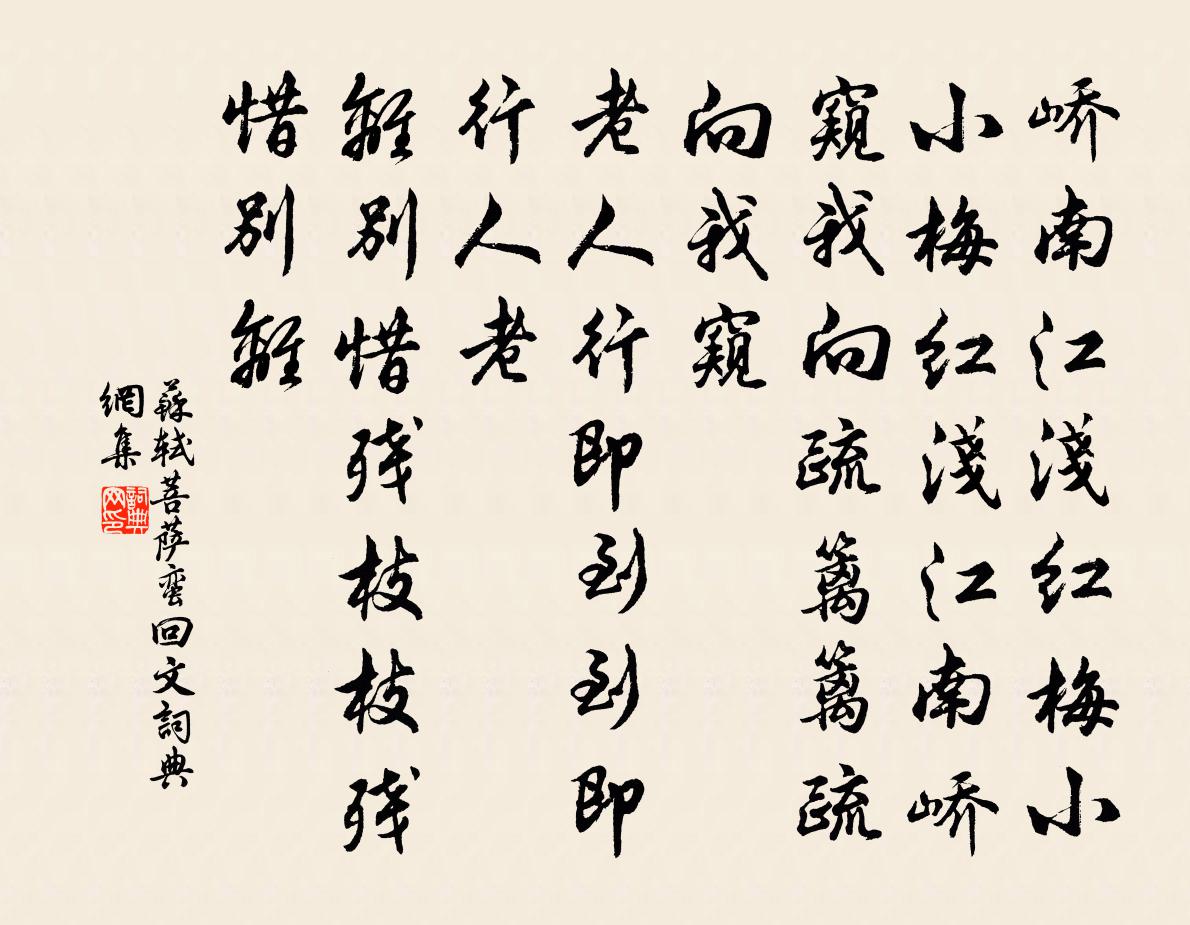 峤南江淺红梅小
小梅红淺江南峤
窺我向疏篱篱疏
向我窺
老人行即到到即
行人老
離别惜残枝枝残
惜别離
蘇轼菩萨蛮回文詞典
網集
詞典网印